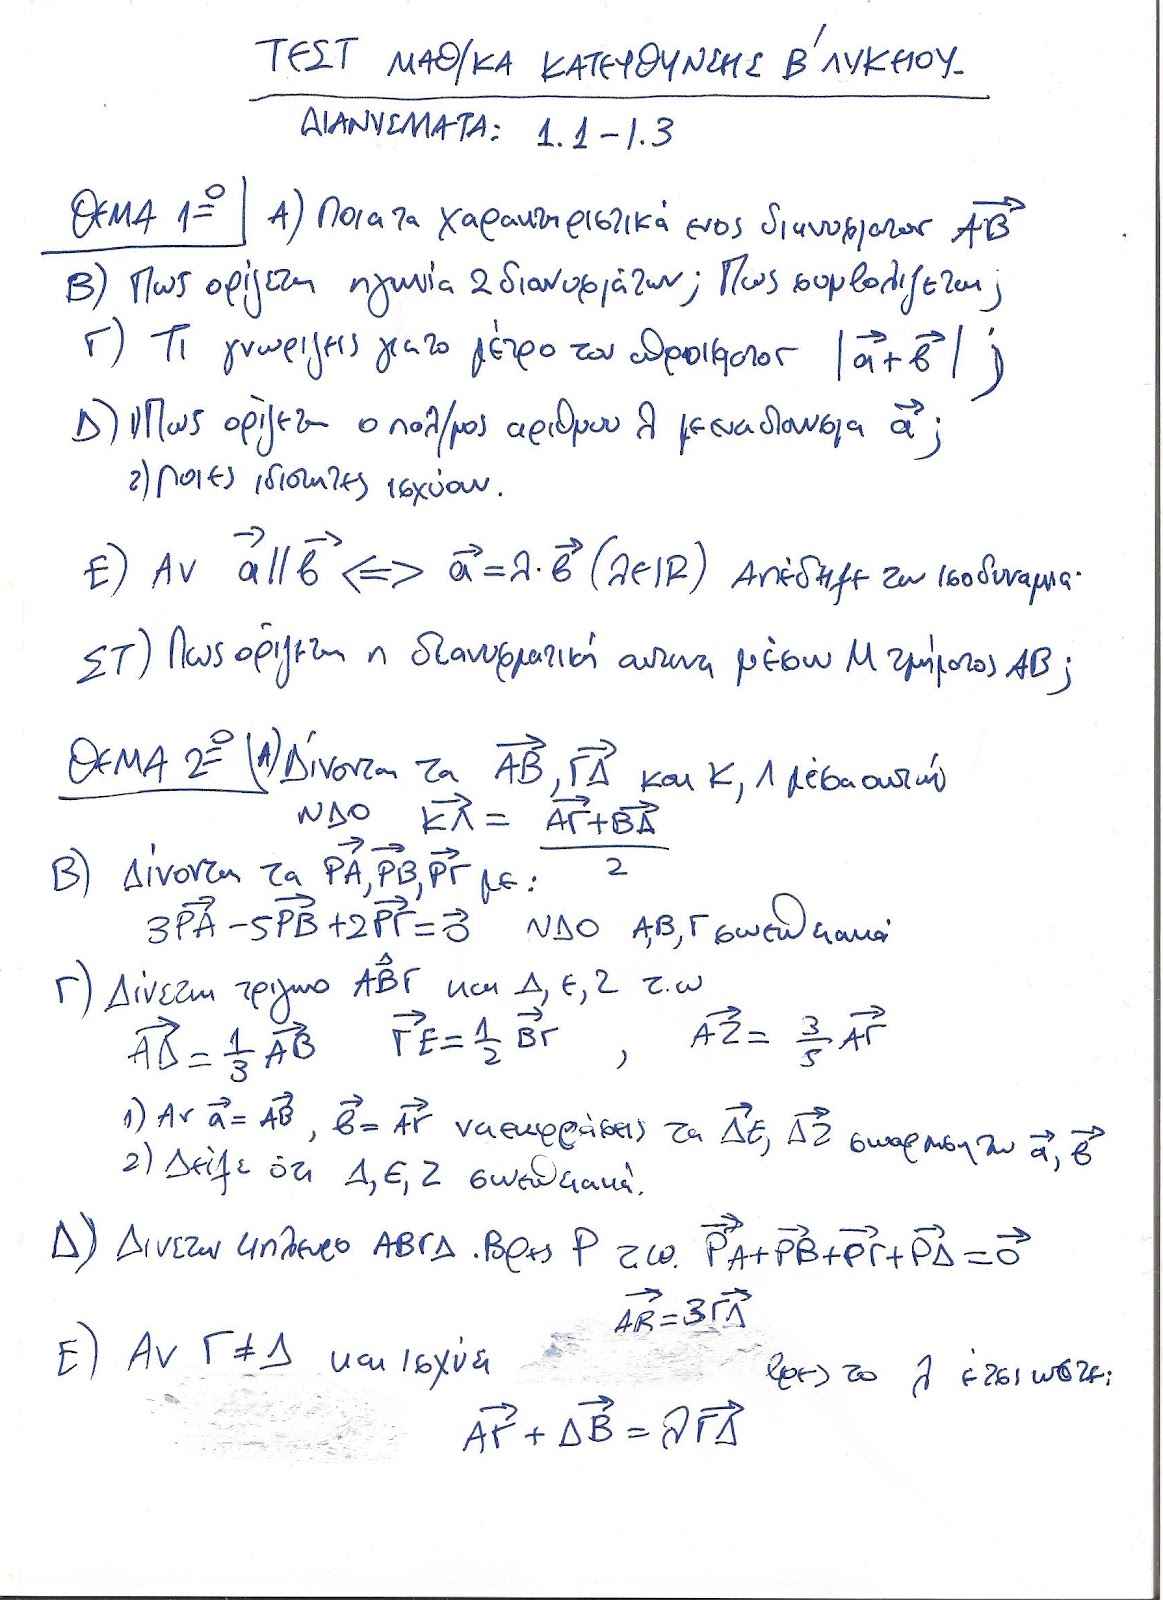 ΤΕΣΤ ΜΑΘ/ΚΑ ΚΑΤΕΥΘΥΝΣΗΣ Β΄ ΛΥΚΕΙΟΥ.
ΔΙΑΝΥΣΜΑΤΑ: 1.1-1.3
ΘΕΜΑ 1º Α) Ποια τα χαρακτηριστικά ενός διανύσματος →ΑΒ
Β) Πως ορίζεται η γωνία 2 διανυσμάτων; Πως συμβολίζεται;
Γ) Τι γνωρίζεις για το μέτρο του αθροίσματος |→α+→β| ;
Δ) 1) Πως ορίζεται ο πολ/μος αριθμου λ με ενα διανυσμα →α;
2) Ποιες ιδιοτητες ισχύουν.
Ε) Αν →α//→β <=> →α=λ·→β (λ∈ΙR) Απέδειξε την ισοδυναμια.
ΣΤ) Πως ορίζεται η διανυσματική ακτινα μέσου Μ τμήματος ΑΒ;
ΘΕΜΑ 2º Α) Δίνονται τα →ΑΒ, →ΓΔ και Κ, Λ μέσα αυτών
ΝΔΟ →ΚΛ = (→ΑΓ+→ΒΔ)/2
Β) Δίνονται τα →ΡΑ, →ΡΒ, →ΡΓ με:
3→ΡΑ-5→ΡΒ+2→ΡΓ=→0 ΝΔΟ Α,Β,Γ συνευθειακά
Γ) Δίνεται τριγωνο ΑΒΓ και Δ, Ε, Ζ τ.ω
→ΑΔ=1/3 →ΑΒ →ΓΕ=1/2 →ΒΓ , →ΑΖ= 3/5 →ΑΓ
1) Αν →α=→ΑΒ, →β=→ΑΓ να εκφράσεις τα →ΔΕ, →ΔΖ συναρτηση των →α, →β
2) Δείξε ότι Δ, Ε, Ζ συνευθειακά.
Δ) Δινεται 4πλευρο ΑΒΓΔ. Βρες Ρ τ.ω. →ΡΑ+→ΡΒ+→ΡΓ+→ΡΔ=→0
→ΑΒ=3→ΓΔ
Ε) Αν Γ≠Δ και ισχύει βρες το λ έτσι ωστε:
→ΑΓ+→ΔΒ=λ→ΓΔ